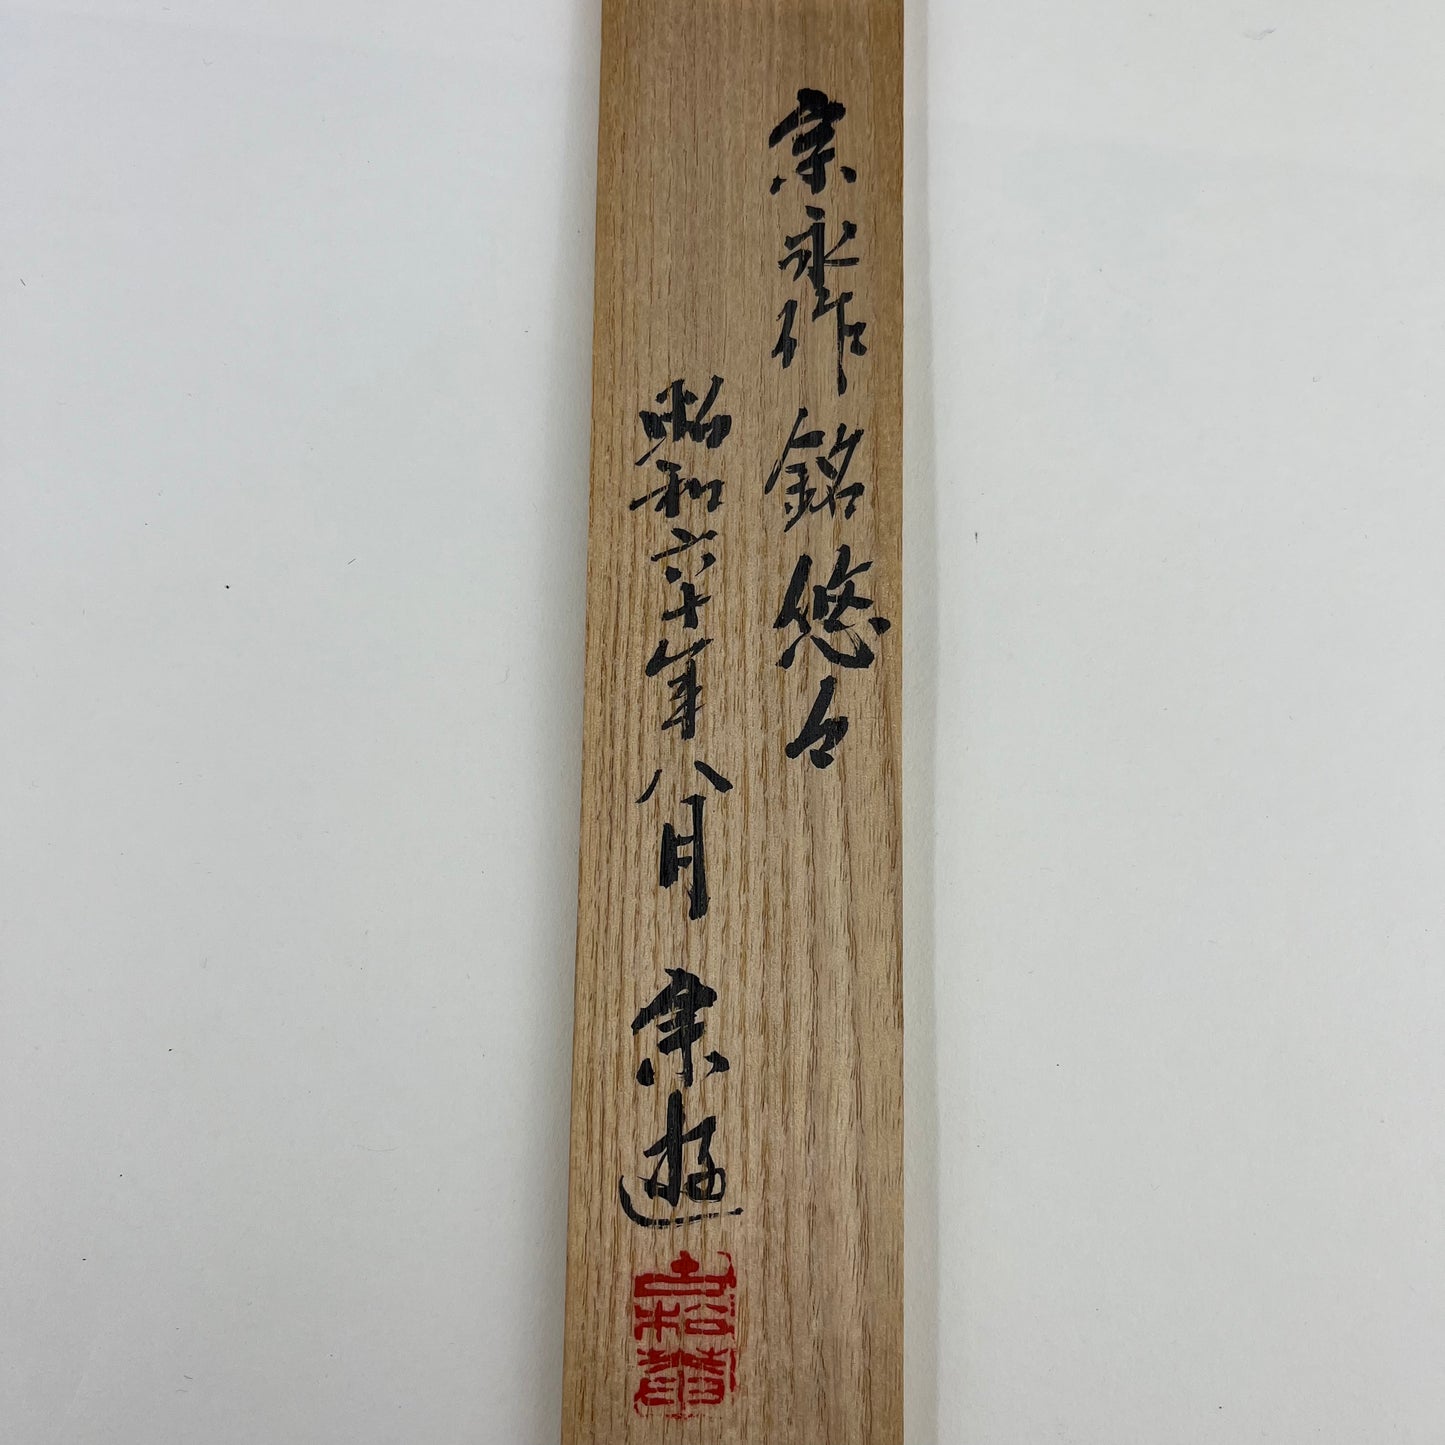 宗永作 銘 悠々
昭和六十年八月 宗遊